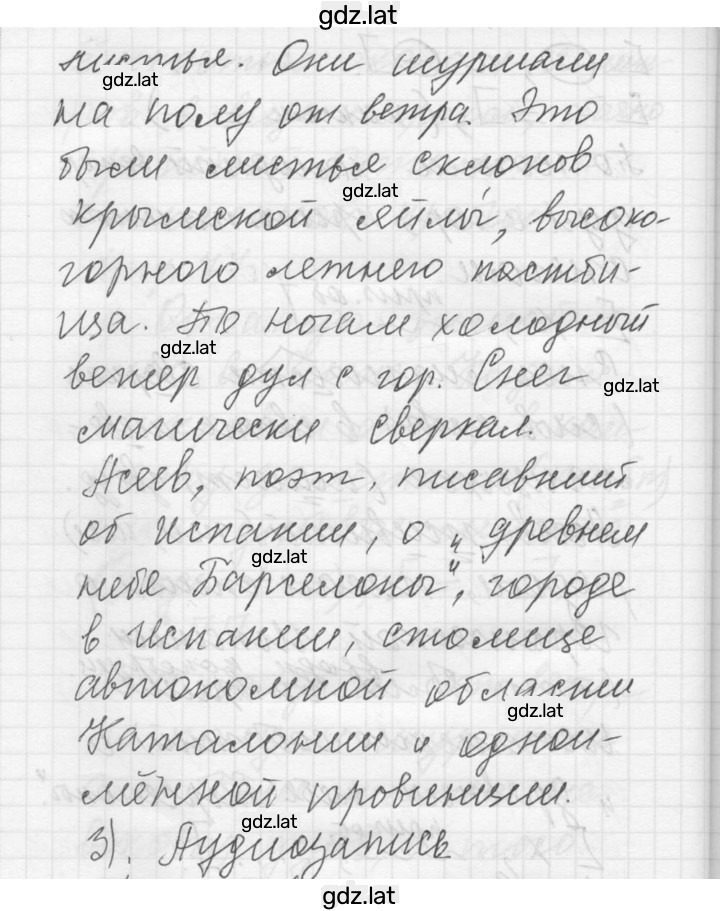 gdz.lat
листья. Они шуршали
gdz.lat
на полу от ветра. Это
были листья склонов
gdz.lat
крымской яйлы, высоко-
горного летнего пастби-
ща. По ногам холодный
gdz.lat
ветер дул с гор. Снег
gdz.lat
магически сверкал.
Асеев, поэт, писавший
об Испании, о „древнем
gdz.lat
небе Барселоны", городе
в Испании, столице
автономной области
gdz.lat
Каталонии и одной-
мённой провинции.
gdz.lat
3). Аудиозапись
gdz.lat